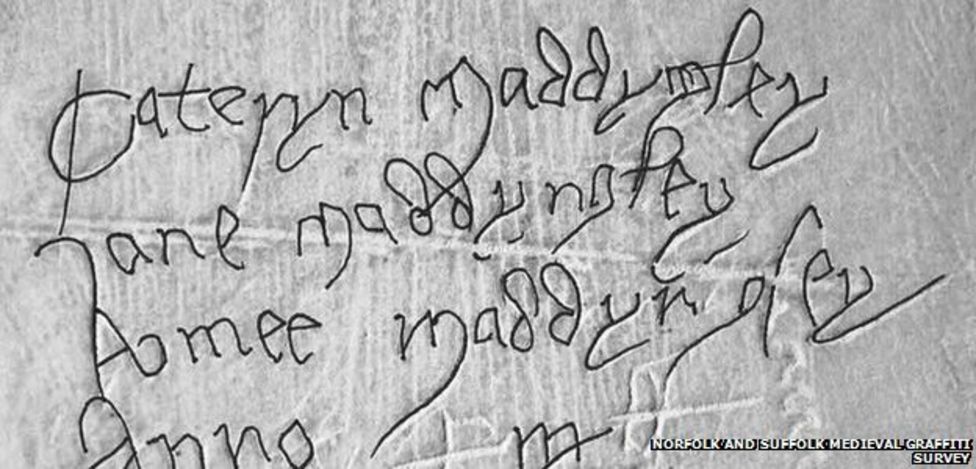 Cateryn maddyngley
Jane maddyngley
Amee maddyngley
Anno m
NORFOLK AND SUFFOLK MEDIEVAL GRAFFITI
SURVEY